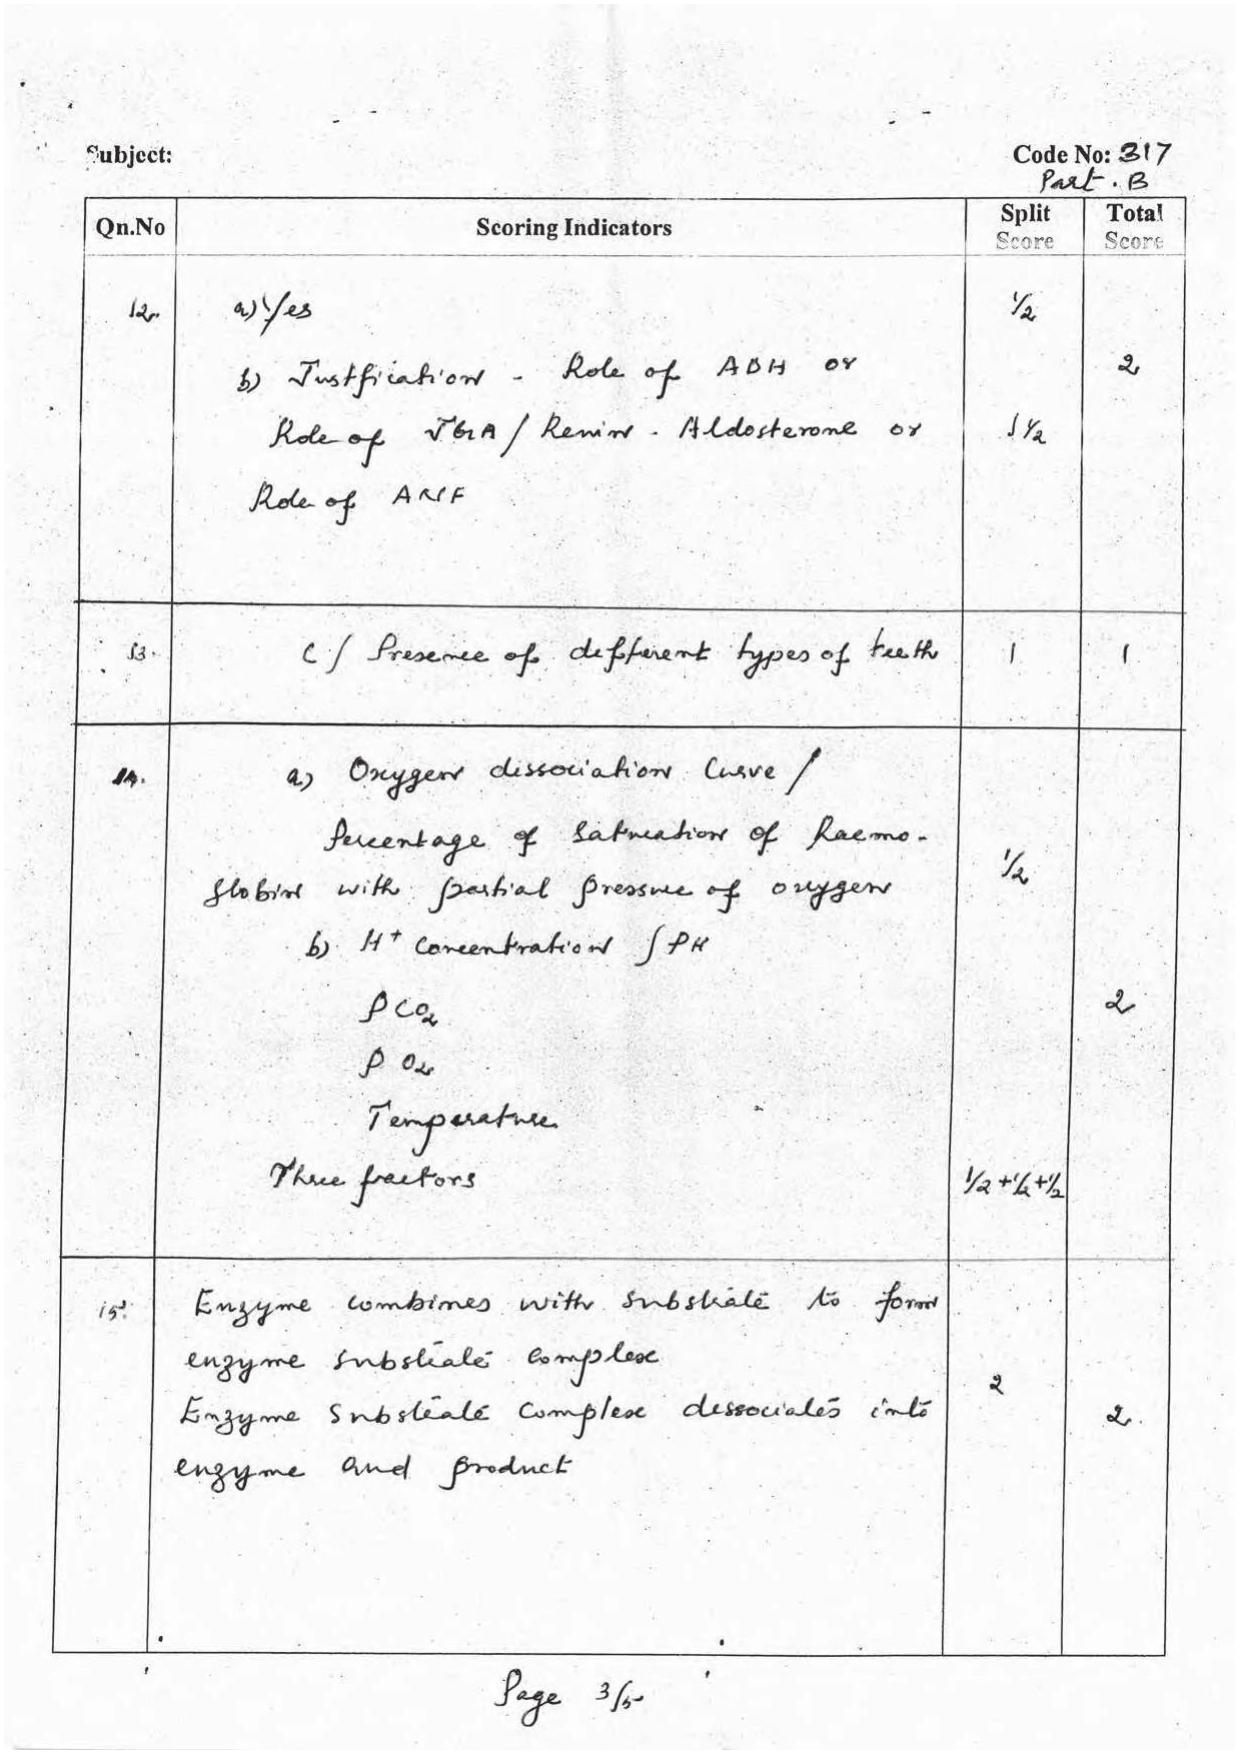 Subject:
Code No: 317
Part. B
Qn.No Scoring Indicators Split Score Total Score
12. a) Yes 1/2
b) Justfication - Role of ADH or 2
Role of JGA / Renin - Aldosterone or 1 1/2
Role of ANF
13. C / Presence of different types of teeth 1 1
14. a) Oxygen dissociation Curve /
Percentage of Saturation of haemo-
globin with partial pressure of oxygen 1/2
b) H+ Concentration / PH
PCO2 2
P O2
Temperature
Three factors 1/2 + 1/2 + 1/2
15. Enzyme combines with substrate to form
enzyme substrate complex 2
Enzyme Substrate Complex dessociates into 2.
enzyme and product
Page 3/5